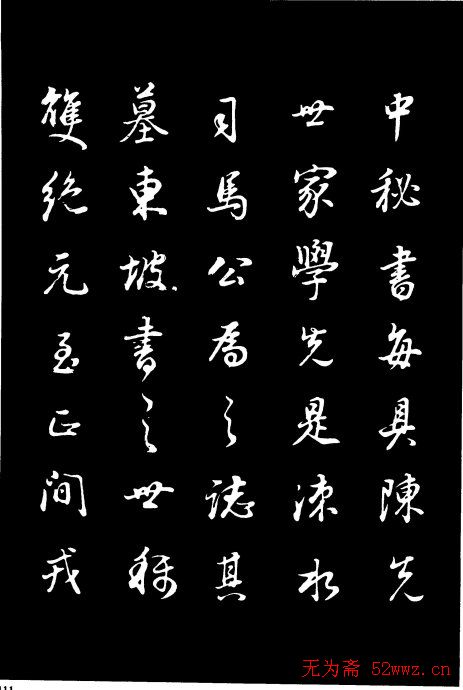 中秘書每具陳先
世家學先是涑水
司馬公爲之誌其
墓東坡書之世稱
雙絶元至正間戎
无为斋 52wwz.cn
111